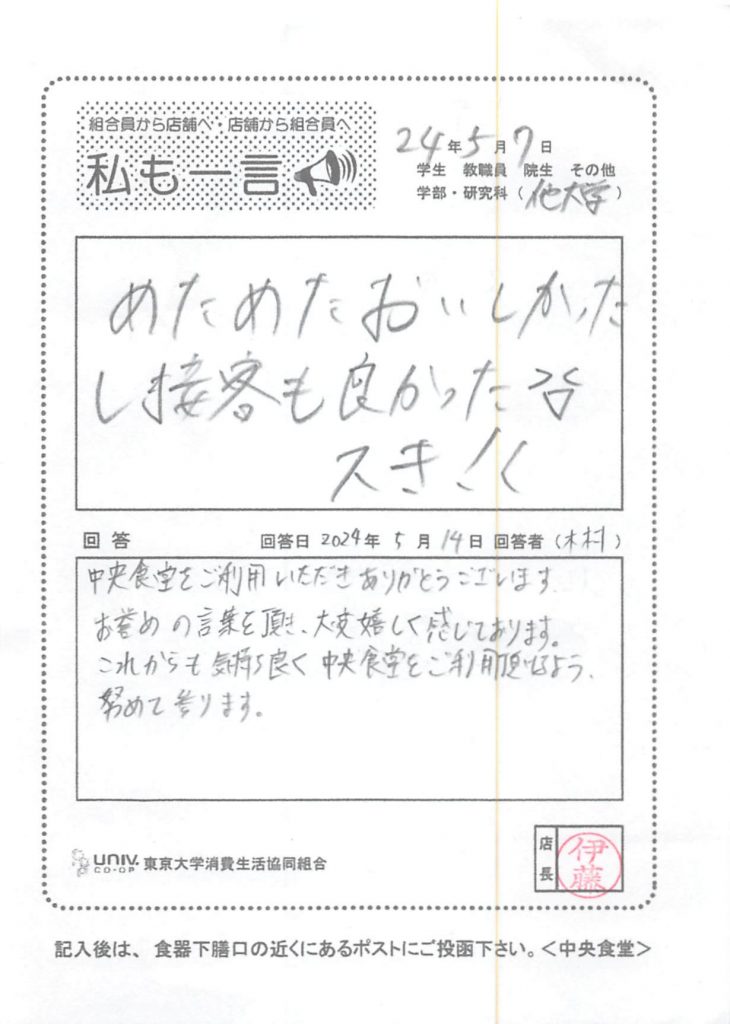 組合員から店舗へ・店舗から組合員へ
私も一言
24年5月7日
学生 教職員 院生 その他
学部・研究科（他大学）
めためたおいしかった
し接客も良かった
スき！く
回答 回答日2024年5月14日 回答者（木村）
中央食堂をご利用いただきありがとうございます。
お誉めの言葉を頂き、大変嬉しく感じております。
これからも気持ち良く中央食堂をご利用頂けるよう、
努めて参ります。
店長
伊藤
UNIV. CO-OP 東京大学消費生活協同組合
記入後は、食器下膳口の近くにあるポストにご投函下さい。＜中央食堂＞